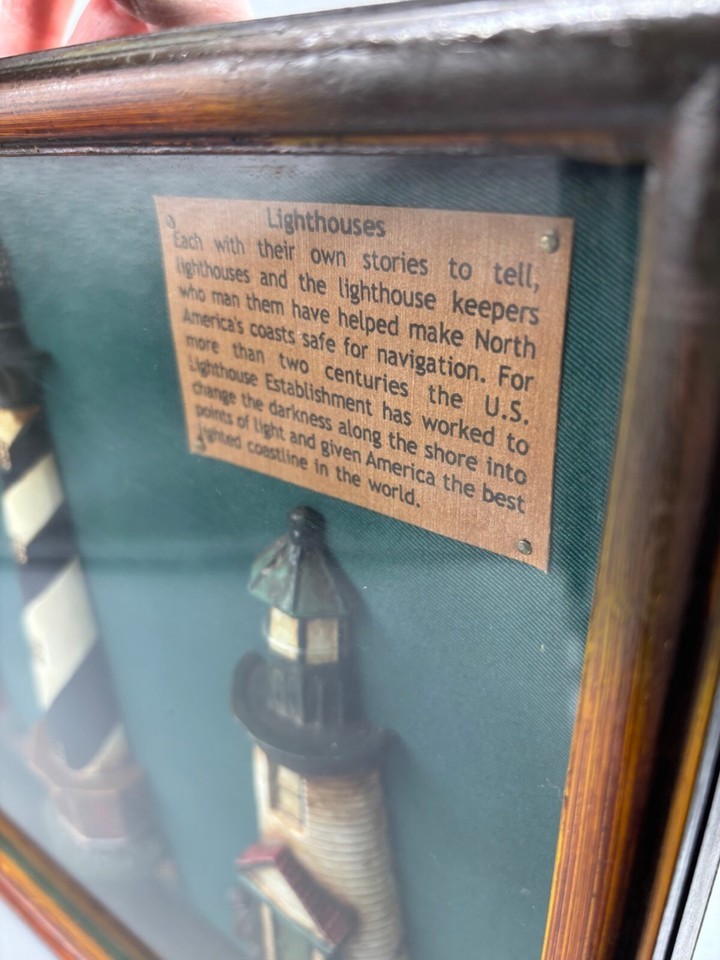 Lighthouses
Each with their own stories to tell,
lighthouses and the lighthouse keepers
who man them have helped make North
America's coasts safe for navigation. For
more than two centuries the U.S.
Lighthouse Establishment has worked to
change the darkness along the shore into
points of light and given America the best
lighted coastline in the world.